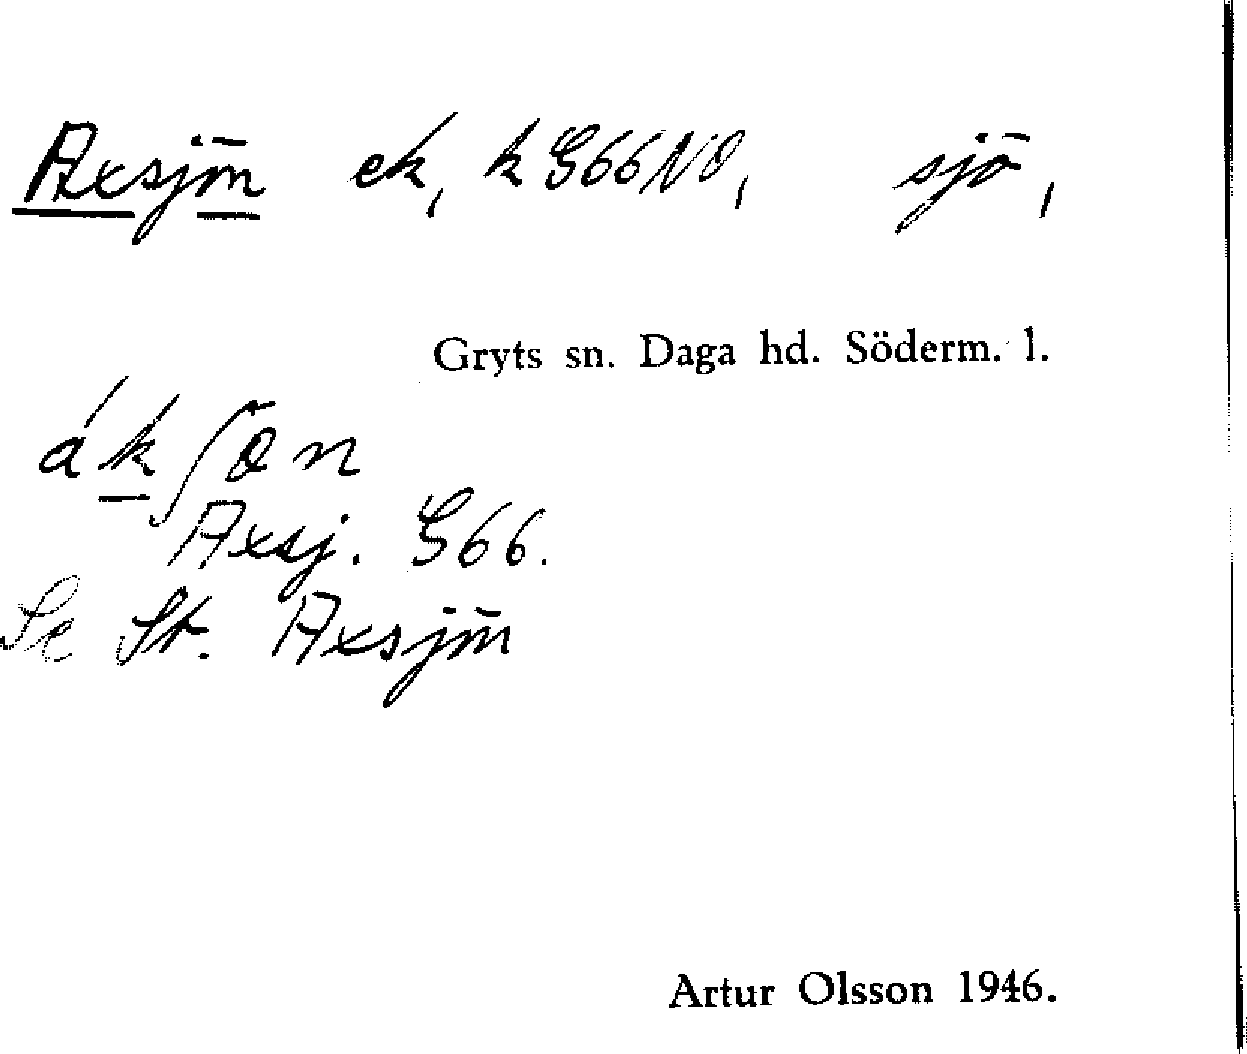 Axsjön ek, k G66NO, sjö,
Gryts sn. Daga hd. Söderm. l.
ákʃøn
Axsj. G66.
Se St. Axsjön
Artur Olsson 1946.